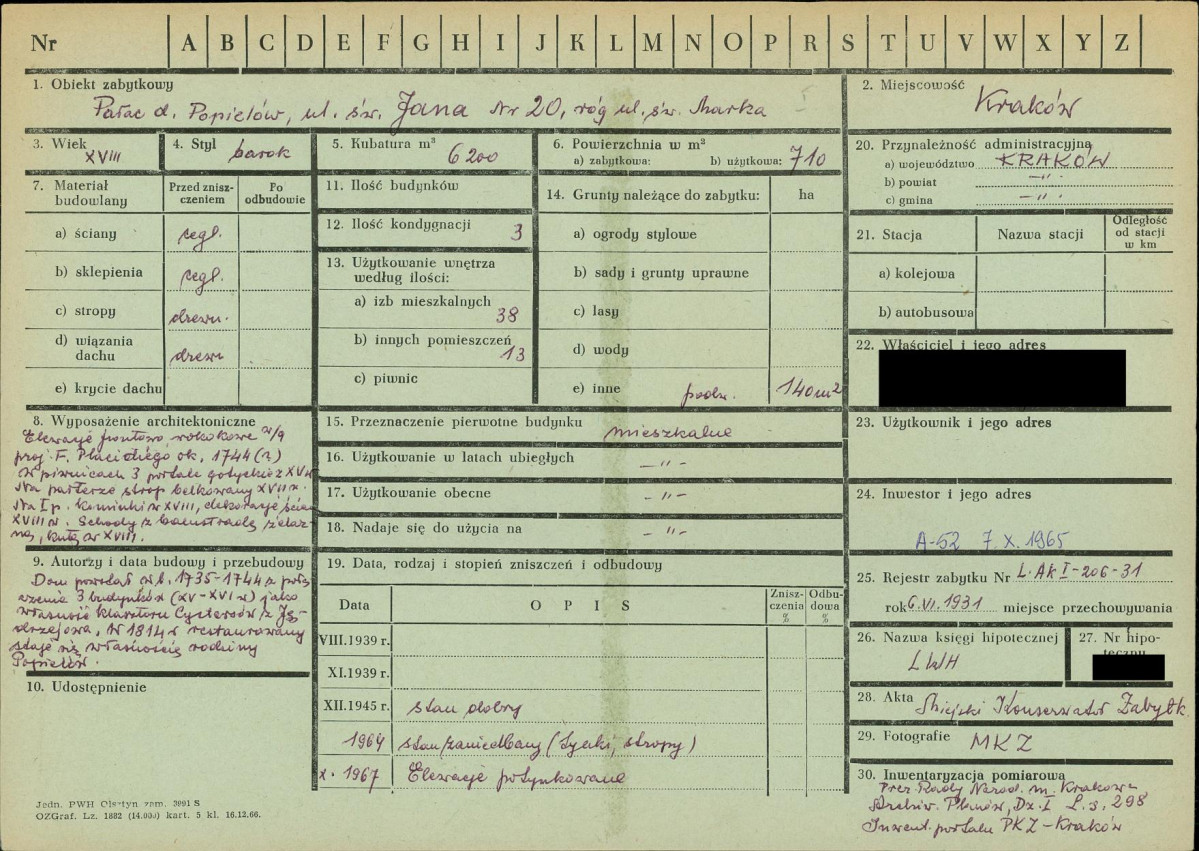 Nr A B C D E F G H I J K L M N O P R S T U V W X Y Z
1. Obiekt zabytkowy
Pałac d. Popielów, ul. św. Jana Nr 20, róg ul. św. Marka
2. Miejscowość
Kraków
3. Wiek
XVIII
4. Styl barok
5. Kubatura m³ 6200
6. Powierzchnia w m²
a) zabytkowa: b) użytkowa: 710
20. Przynależność administracyjna
a) województwo KRAKÓW
b) powiat —„—
c) gmina —„—
7. Materiał budowlany
Przed zniszczeniem
Po odbudowie
a) ściany cegl.
b) sklepienia cegl.
c) stropy drewn.
d) wiązania dachu drewn
e) krycie dachu
11. Ilość budynków
12. Ilość kondygnacji 3
13. Użytkowanie wnętrza
według ilości:
a) izb mieszkalnych
38
b) innych pomieszczeń
13
c) piwnic
14. Grunty należące do zabytku: ha
a) ogrody stylowe
b) sady i grunty uprawne
c) lasy
d) wody
e) inne podw. 140m²
21. Stacja Nazwa stacji
Odległość
od stacji
w km
a) kolejowa
b) autobusowa
22. Właściciel i jego adres
8. Wyposażenie architektoniczne
Elewacje frontowe rokokowe w/g
proj. F. Placidiego ok. 1744 (?)
W piwnicach 3 portale gotyckie z XV w
Na parterze strop belkowany XVII w.
Na I p. kominki w XVIII, dekoracje ścien
XVIII w. Schody z balustradą żelaz-
ną, kutą w XVIII.
15. Przeznaczenie pierwotne budynku mieszkalne
16. Użytkowanie w latach ubiegłych —„—
17. Użytkowanie obecne —„—
18. Nadaje się do użycia na —„—
23. Użytkownik i jego adres
24. Inwestor i jego adres
A-52 7. X. 1965
9. Autorzy i data budowy i przebudowy
Dom powstał w l. 1735-1744 z połą
czenia 3 budynków (XV-XVI w) jako
własność klasztoru Cystersów z Ję-
drzejowa, W 1814 r restaurowany
staje się własnością rodziny
Popielów.
10. Udostępnienie
19. Data, rodzaj i stopień zniszczeń i odbudowy
Data OPIS
Znisz-
czenia
%
Odbu-
dowa
%
VIII.1939 r.
XI.1939 r.
XII.1945 r. stan dobry
1964 stan zaniedbany (tynki, stropy)
X. 1967 Elewacje potynkowane
25. Rejestr zabytku Nr L.AK I-206-31
rok 6.VI.1931 miejsce przechowywania
26. Nazwa księgi hipotecznej
LWH
27. Nr hipo-
teczny
28. Akta Miejski Konserwator Zabytk.
29. Fotografie MKZ
30. Inwentaryzacja pomiarowa
Prez. Rady Narod. m. Krakowa
Archiw. Planów, Dz. I L.s. 298
Inwent. portalu PKZ-Kraków
Jedn. PWH Olsztyn zam. 3991 S
OZGraf. Lz. 1882 (14.000) kart. 5 kl. 16.12.66.